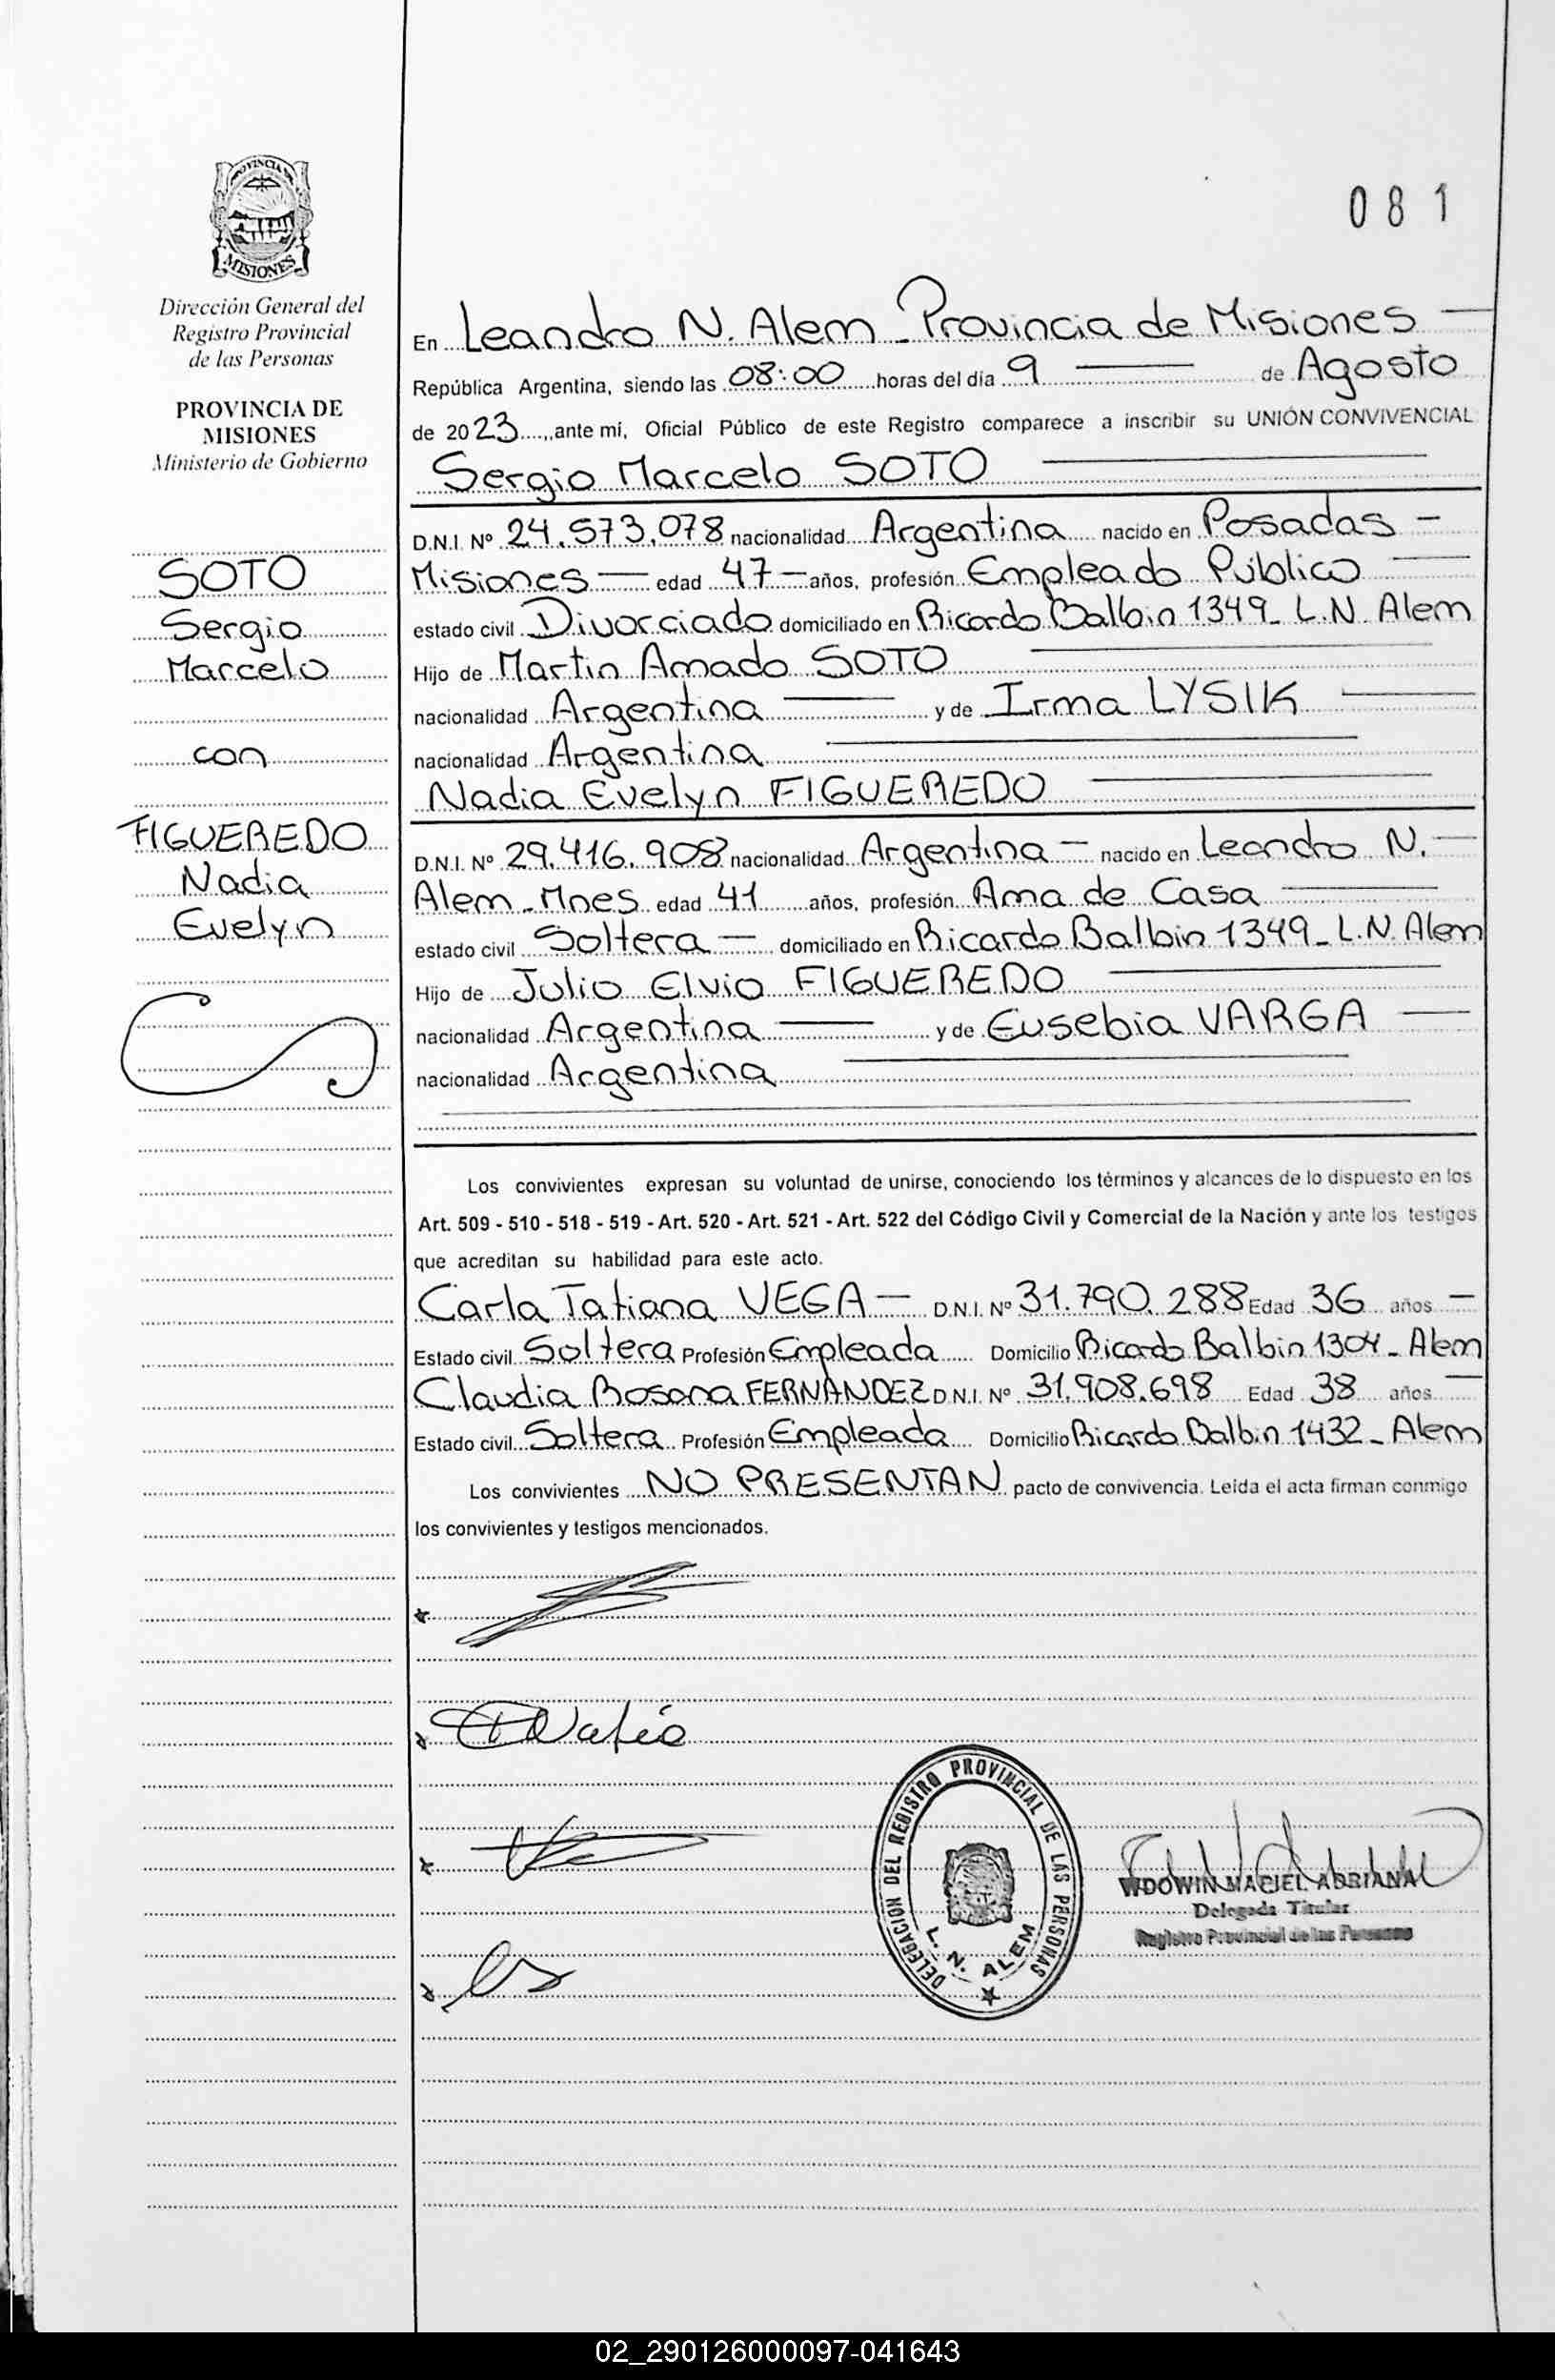 PROVINCIA DE
MISIONES
Dirección General del
Registro Provincial
de las Personas
PROVINCIA DE
MISIONES
Ministerio de Gobierno
SOTO
Sergio
Marcelo
con
FIGUEREDO
Nadia
Evelyn
081
En Leandro N. Alem - Provincia de Misiones
República Argentina, siendo las 08:00 horas del día 9 de Agosto
de 2023, ante mí, Oficial Público de este Registro comparece a inscribir su UNIÓN CONVIVENCIAL
Sergio Marcelo SOTO
D.N.I. Nº 24.573.078 nacionalidad Argentina nacido en Posadas -
Misiones — edad 47 — años, profesión Empleado Público
estado civil Divorciado domiciliado en Ricardo Balbin 1349 - L.N. Alem
Hijo de Martin Amado SOTO
nacionalidad Argentina y de Irma LYSIK
nacionalidad Argentina
Nadia Evelyn FIGUEREDO
D.N.I. Nº 29.416.908 nacionalidad Argentina — nacido en Leandro N. —
Alem - Mnes edad 41 años, profesión Ama de Casa
estado civil Soltera — domiciliado en Ricardo Balbin 1349 - L.N. Alem
Hijo de Julio Elvio FIGUEREDO
nacionalidad Argentina y de Eusebia VARGA
nacionalidad Argentina
Los convivientes expresan su voluntad de unirse, conociendo los términos y alcances de lo dispuesto en los
Art. 509 - 510 - 518 - 519 - Art. 520 - Art. 521 - Art. 522 del Código Civil y Comercial de la Nación y ante los testigos
que acreditan su habilidad para este acto.
Carla Tatiana VEGA — D.N.I. Nº 31.790.288 Edad 36 años —
Estado civil Soltera Profesión Empleada Domicilio Ricardo Balbin 1304 - Alem
Claudia Rosana FERNANDEZ D.N.I. Nº 31.908.698 Edad 38 años —
Estado civil Soltera Profesión Empleada Domicilio Ricardo Balbin 1432 - Alem
Los convivientes NO PRESENTAN pacto de convivencia. Leída el acta firman conmigo
los convivientes y testigos mencionados.
Nadia
DELEGACION DEL REGISTRO PROVINCIAL DE LAS PERSONAS
L. N. ALEM
WDOWIN MACIEL ADRIANA
Delegada Titular
Registro Provincial de las Personas
02_290126000097-041643